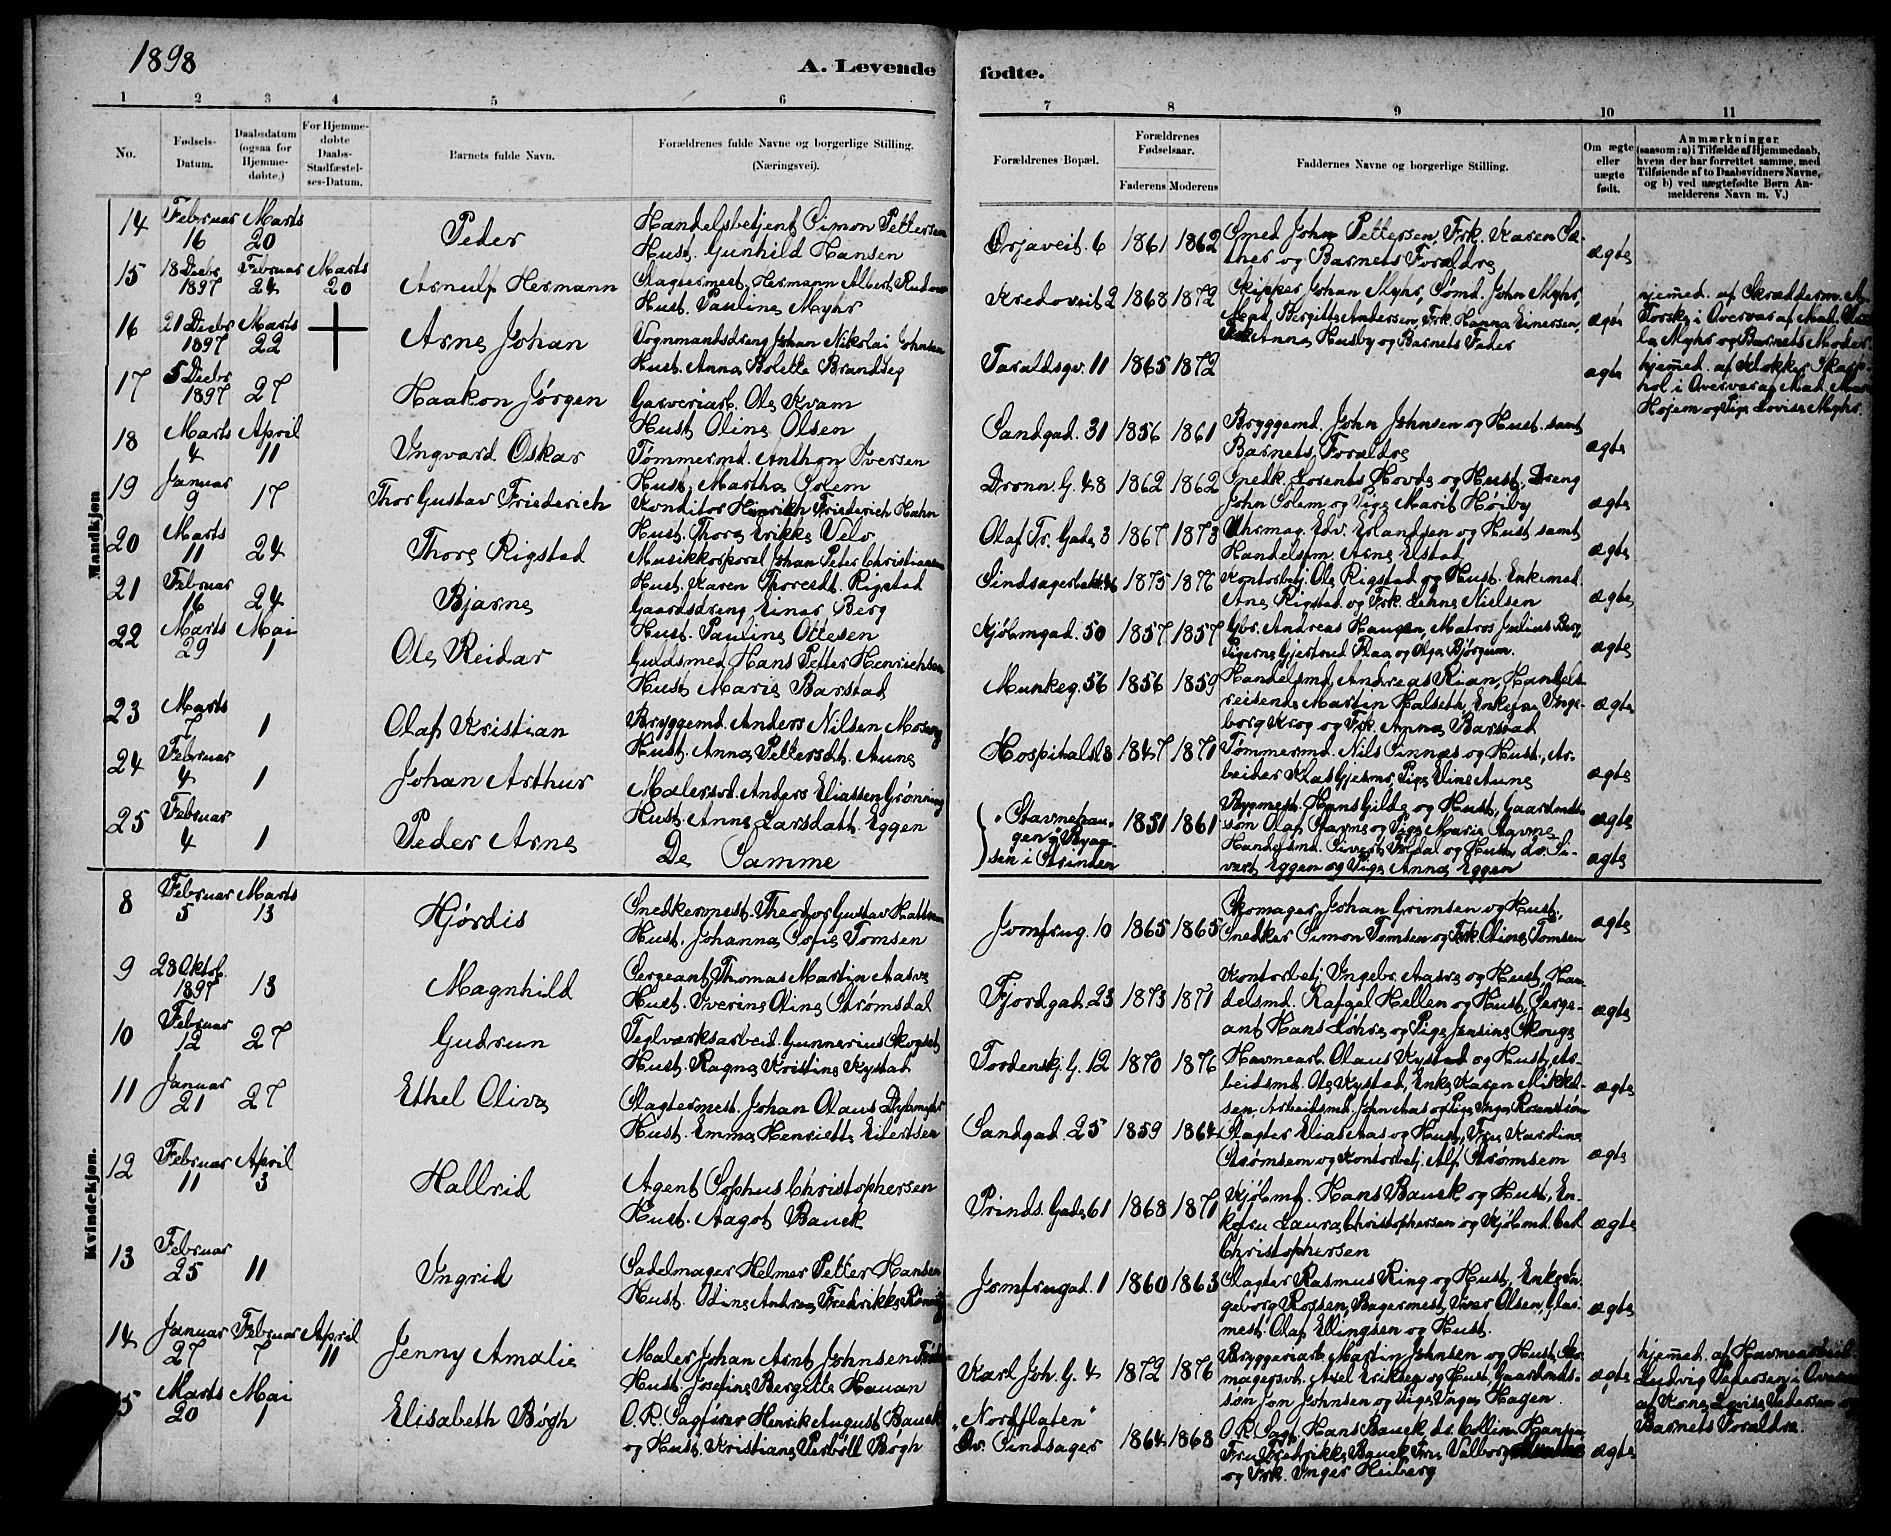 1898
A. Levende fødte.
1 2 3 4 5 6 7 8 9 10 11
No.
Fødsels-Datum.
Daabsdatum (ogsaa for Hjemme-døbte.)
For Hjemme-døbte Daabs-Stadfæstel-ses-Datum.
Barnets fulde Navn.
Forældrenes fulde Navne og borgerlige Stilling.
(Næringsvei).
Forældrenes Bopæl.
Forældrenes Fødselsaar.
Faderens Moderens
Faddernes Navne og borgerlige Stilling.
Om ægte eller uægte født.
Anmærkninger
(saasom: a) i Tilfælde af Hjemmedaab,
hvem der har forrettet samme, med
Tilføiende af to Daabsvidners Navne,
og b) ved uægtefødte Børn An-
melderens Navn m. V.)
Mandkjøn
14 Februar 16 Marts 20 Peder
Handelsbetjent Simon Pettersen
Hust. Gunhild Hansen
Ørjaveit. 6 1861 1862
Smed John Pettersen, Frk. Karen Sæ-
ther og Barnets Forældre
ægte
15 18 Decbr 1897 Februar 24 Marts 20 Arnulf Hermann
Slagtermest. Hermann Albert
Hust. Pauline Myhr
Kredoveit 2 1868 1872
Skipper Johan Myhr, Sømd. John Myhr,
Mad. Bergitte Andersen, Frk. Hanna Einersen,
Frk. Anna Husby og Barnets Fader
ægte
hjemmed. af Skrædderm. A.
Torske i Overvær af Mad.
Myhr og Barnets Moder
16 21 Decbr 1897 Marts 22 Arne Johan
Vognmandsdreng Johan Nikolai Johnsen
Hust. Anna Bolette Brandseg
Taraldsgv. 11 1865 1872
ægte
hjemmed. af Klokker Skaps-
hol i Overvær af Mad.
Hojem og Pige Lovise Myhr.
17 5 Decbr 1897 27 Haakon Jørgen
Garveriarb. Ole Kvam
Hust. Oline Olsen
Sandgad. 31 1856 1861
Bryggemd. John Johnsen og Hust. samt
Barnets Forældre
ægte
18 Marts 4 April 11 Ingvard Oskar
Tømmermd. Anthon Iversen
Hust. Martha Solem
Dronn. G. 48 1862 1862
Snedk. Lorents Hovde og Hust., Dreng
John Solem og Pige Marit Høiby
ægte
19 Januar 9 17 Thor Gustav Friederich
Konditor Hinrikh Friederich Hahn
Hust. Thora Erikke Velo
Olaf Tr. Gade 3 1867 1873
Uhrmag. Edv. Erlandsen og Hust. samt
Handelsm. Arne Elstad
ægte
20 Marts 11 24 Thore Rigstad
Musikkorporal Johan Peter Christiansen
Hust. Karen Thoresdt. Rigstad
1875 1876
Kontorbetj. Ole Rigstad og Hust. Enkemad.
Ane Rigstad og Frk. Lehne Nielsen
ægte
21 Februar 16 24 Bjarne
Gaardsdreng Einar Berg
Hust. Pauline Ottesen
Kjøbmgad. 50 1857 1857
Gbr. Andreas Haugen, Matros Julius Berg,
Pigerne Gjertrud Flaa og Olga Bjørgum.
ægte
22 Marts 29 Mai 1 Ole Reidar
Guldsmed Hans Petter Henrichsen
Hust. Marie Barstad
Munkeg. 56 1856 1859
Handelsmd. Andreas Rian, Handels-
reisende Martin Halseth, Enkefru Inge-
borg Krog og Frk. Anna Barstad
ægte
23 Marts 7 1 Olaf Kristian
Bryggemd. Anders Nilsen Moseng
Hust. Anna Pettersdt. Aune
1847 1871
Tømmermd. Nils Sinnæs og Hust., Ar-
beider Klas Gjermo, Pige Eline Aune
ægte
24 Februar 4 1 Johan Arthur
Malersvd. Anders Eliassen Grønning
Hust. Anne Larsdatt. Eggen
"Stavnehau-
gen", Byaa-
sen i Strinden
1851 1861
Bygmest. Hans Gilde og Hust., Gaardmds-
søn Olaf Stavne og Pige Marie Stavne
ægte
25 Februar 4 1 Peder Arne
De Samme
Handelsmd. Sivert Foldal og Hustru, do. Si-
vert Eggen og Pige Anna Eggen
ægte
Kvindekjøn.
8 Februar 5 Marts 13 Hjørdis
Snedkermest. Theodor Gustav
Hust. Johanna Sofie Tomsen
Jomfrug. 10 1865 1865
Skomager Johan Grimsen og Hust.,
Snedker Simon Tomsen og Frk. Oline Tomsen
ægte
9 28 Oktob. 1897 13 Magnhild
Sergeant Thomas Martin Aasve
Hust. Iverine Oline Strømsdal
Fjordgad. 23 1873 1871
Kontorbetj. Ingebr. Aasve og Hust., Han-
delsmd. Rafael Hellen og Hust., Serge-
ant Hans Løhre og Pige Jensine Skouge
ægte
10 Februar 12 27 Gudrun
Teglværksarbeid. Gunnerius Skogset
Hust. Ragna Kristine Kystad
Tordensk. G. 12 1870 1876
Havnearb. Olaus Kystad og Hust., Ar-
beidsmd. Ole Kystad, Enke Karen Mikkel-
sen, Arbeidsmd. John Aas og Pige Inga Rosenstrøm
ægte
11 Januar 21 27 Ethel Oliva
Slagtermest. Johan Olaus
Hust. Emma Henriette Eilertsen
Sandgad. 25 1859 1864
Slagter Elias Aas og Hust., Fru Karoline
Strømsem og Kontorbetj. Alf Strømsem
ægte
12 Februar 11 April 3 Hallrid
Agent Sophus Christophersen
Hust. Aagot Bauck
Prinds. Gade 61 1868 1871
Kjøbmd. Hans Bauck og Hust., En-
kefru Laura Christophersen og Kjøbmd.
Christophersen
ægte
13 Februar 25 11 Ingrid
Sadelmager Helmer Petter Hansen
Hust. Odine Andrea Fredrikke
Jomfrugad. 1 1860 1863
Slagter Rasmus Ring og Hust., Enke In-
geborg Rossen, Bagermest. Iver Olsen, Glas-
mest. Olaf Ellingsen og Hust.
ægte
14 Januar 27 Februar 7 April 11 Jenny Amalie
Maler Johan Arnt Johnsen
Hust. Josefine Bergitte Hauan
Karl Joh. G. 4 1872 1876
Bryggeriarb. Martin Johnsen og Hust., Sko-
magersvd. Axel Eriksen og Hust., Gaardmds-
søn Jon Johnsen og Pige Inga Hagen
ægte
hjemmed. af Havnearbeid.
Ludvig Pedersen i Overvær
af Kone Lovise Pedersen og
Barnets Forældre.
15 Marts 20 Mai 1 Elisabeth Bøgh
O. R. Sagfører Henrik August Bauck
og Hust. Kristiane Bøgh
"Nordflaten"
Øv. Sindsager
1864 1868
O. R. Sagf. Hans Bauck, do. Collin
Fru Fredrikke Bauck, Fru Valborg
og Frk. Inger Heiberg
ægte